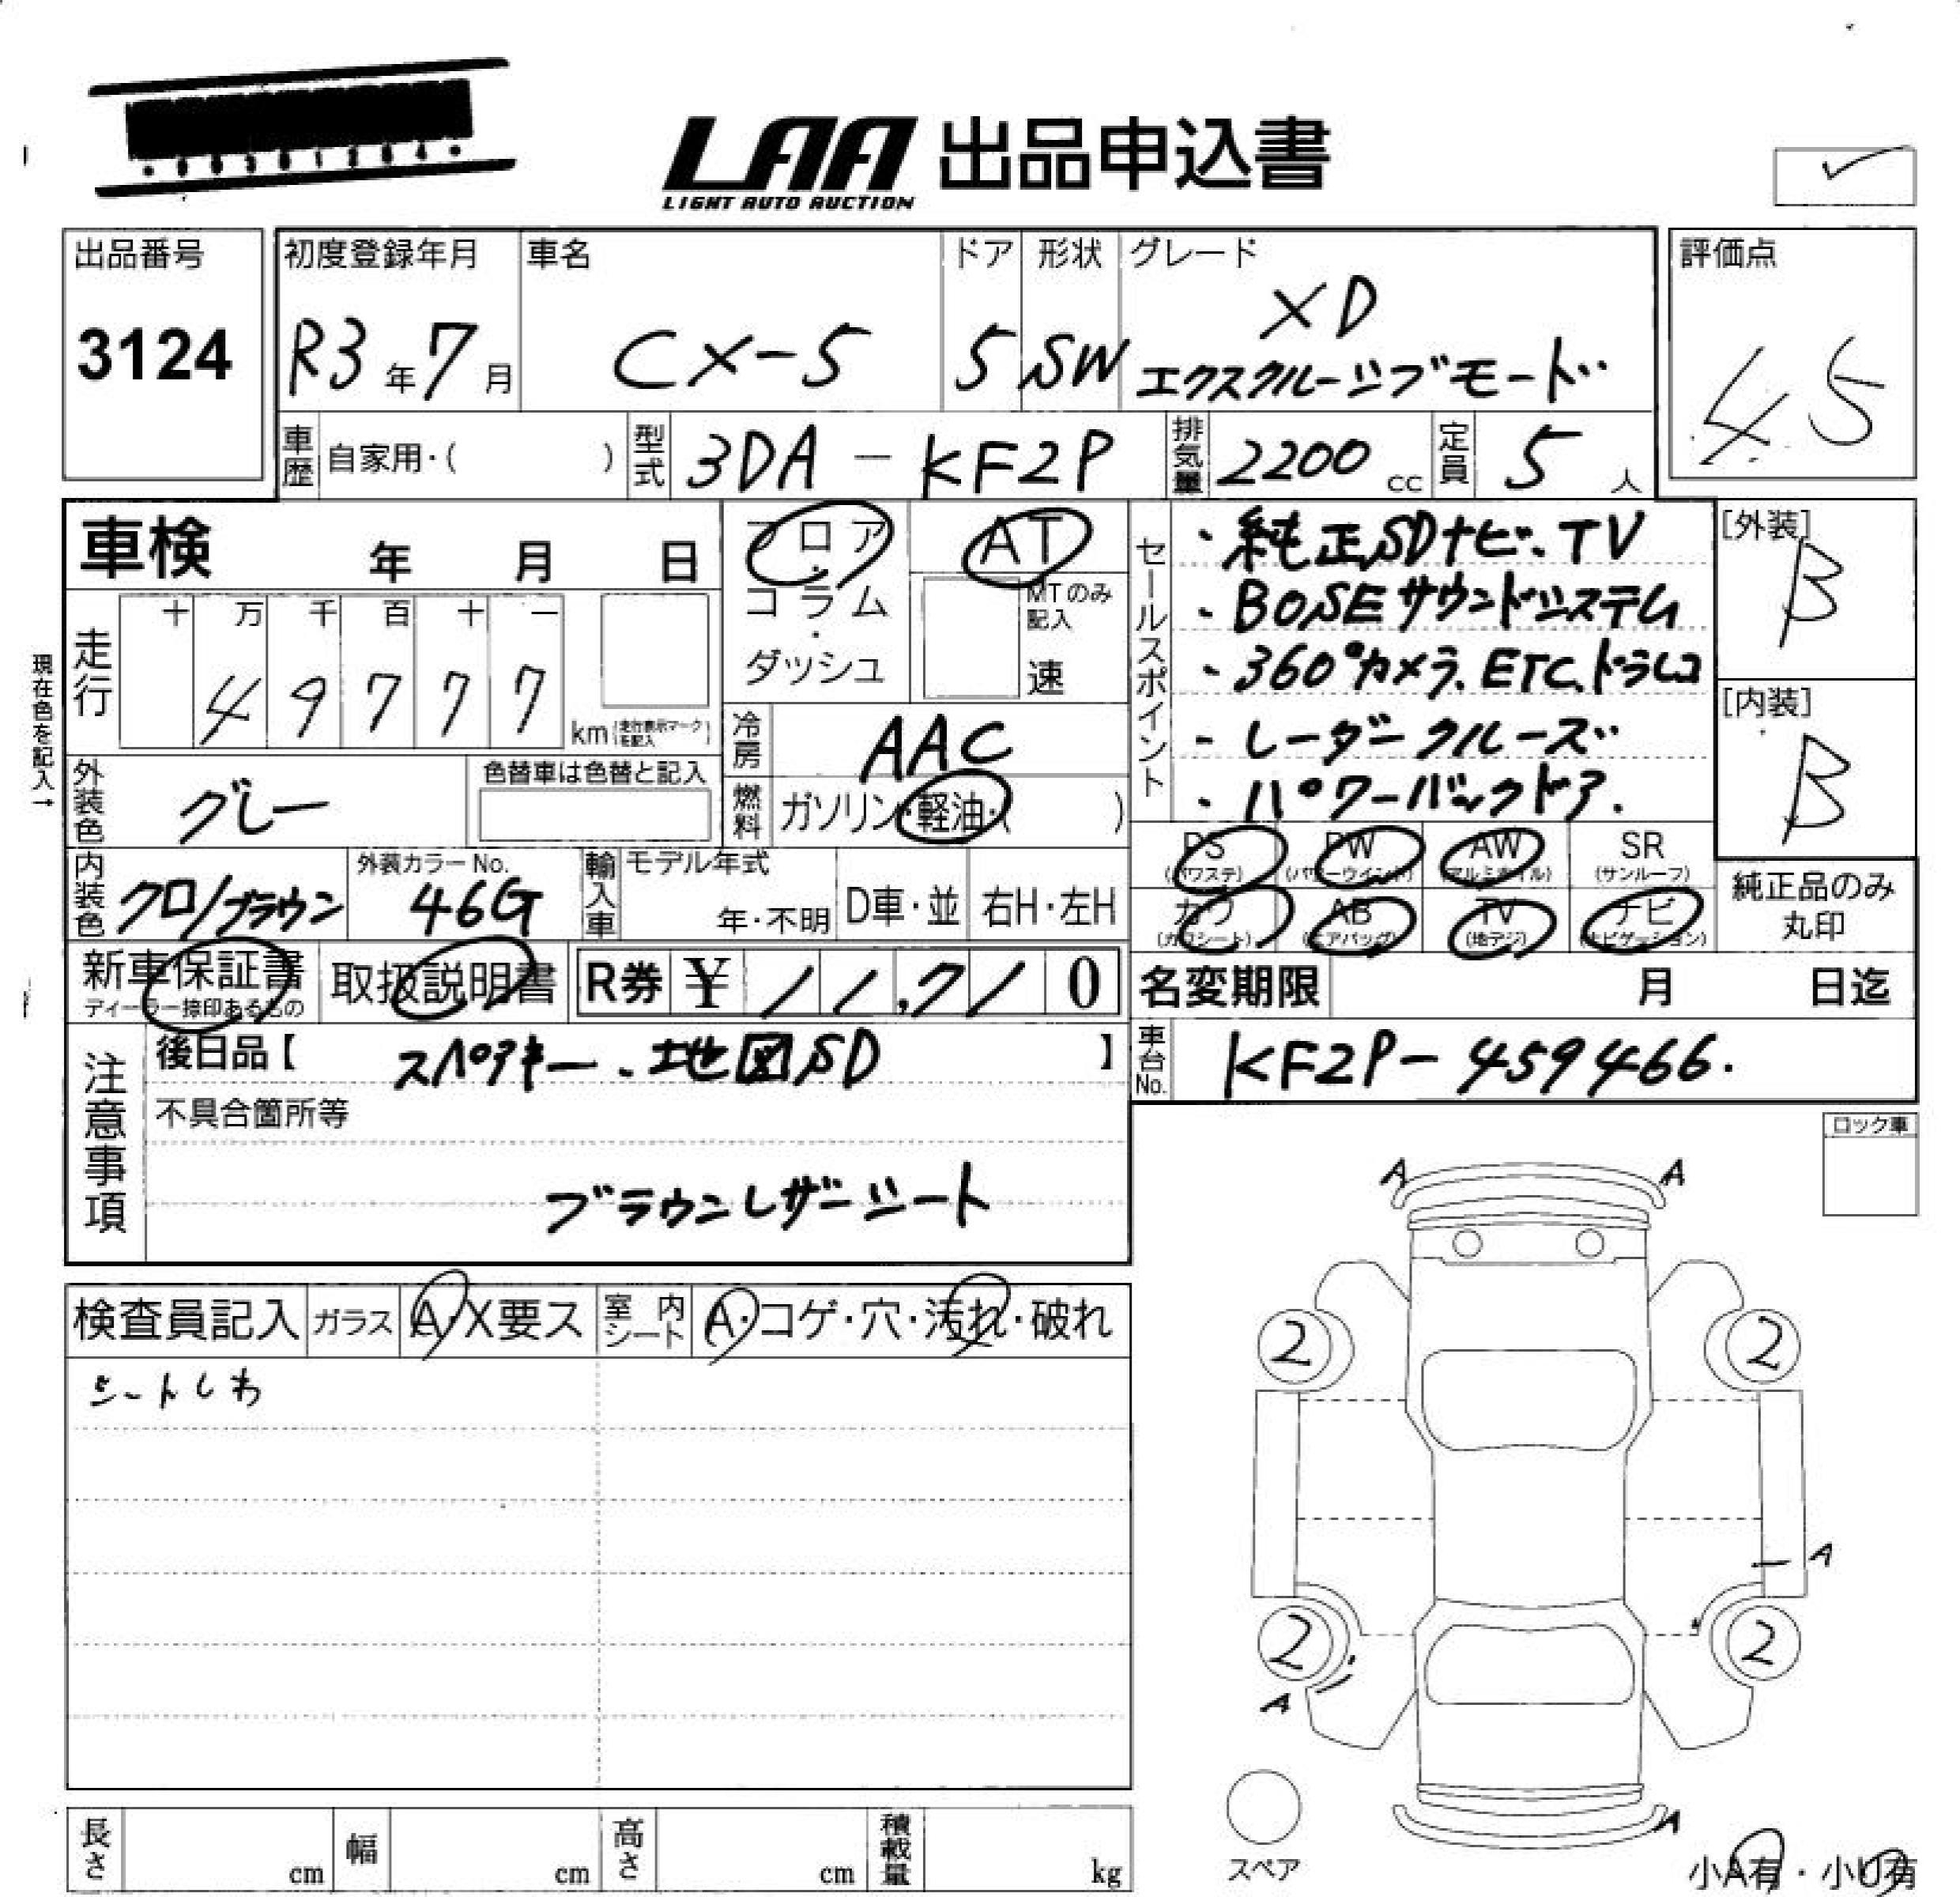 LAA 出品申込書
LIGHT AUTO AUCTION
出品番号
3124
初度登録年月
R3年7月
車名
CX-5
ドア
5
形状
SW
グレード
XD
エクスクルーシブモード
評価点
4.5
車歴 自家用・( )
型式 3DA-KF2P
排気量 2200 cc
定員 5 人
車検 年 月 日
フロア・コラム・ダッシュ
AT
MTのみ記入
速
走行
十 万 千 百 十 一
4 9 7 7 7
km (走行表示マークを記入)
現在色を記入→
外装色 グレー
色替車は色替と記入
冷房 AAC
燃料 ガソリン・軽油・( )
セールスポイント
・純正SDナビ、TV
・BOSEサウンドシステム
・360°カメラ、ETC、ドラレコ
・レーダークルーズ
・パワーバックドア.
[外装]
B
[内装]
B
内装色 クロ/ブラウン
外装カラーNo.
46G
輸入車
モデル年式
年・不明
D車・並
右H・左H
PS (パワステ)
PW (パワーウインド)
AW (アルミホイル)
SR (サンルーフ)
カワ (カワシート)
AB (エアバッグ)
TV (地デジ)
ナビ (ナビゲーション)
純正品のみ
丸印
新車保証書
ディーラー捺印あるもの
取扱説明書
R券 ¥ 11,710
名変期限 月 日迄
車台No. KF2P-459466.
注意事項
後日品【 スペアキー、地図SD 】
不具合箇所等
ブラウンレザーシート
ロック車
検査員記入
ガラス A・X要ス
室内シート A・コゲ・穴・汚れ・破れ
シートしわ
A A
2 2
A
2 2
A
A
スペア
小A有・小U有
長さ cm
幅 cm
高さ cm
積載量 kg